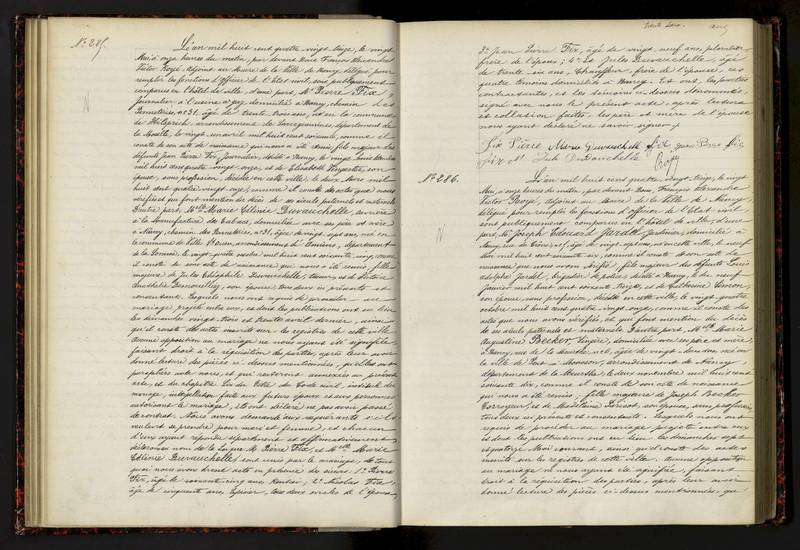 N° 285.
L'an mil huit cent quatre vingt treize, le vingt
Mai à onze heures du matin, par devant Nous François Alexandre
Victor Royé, adjoint au Maire de la Ville de Nancy, délégué pour
remplir les fonctions d'Officier de l'Etat civil, sont publiquement
comparus en l'hôtel de ville, d'une part, Mr Pierre Fix
journalier à l'usine à gaz, domicilié à Nancy, chemin des
N° 31, âgé de trente trois ans, né en la commune
arrondissement de Sarreguemines, département de
la Moselle, le vingt un avril mil huit cent soixante, comme il
conste de son acte de naissance qui nous a été remis, fils majeur des
défunts Jean Pierre Fix, journalier, décédé à Nancy, le vingt
mil huit cent quatre vingt onze, et de Elisabeth son
épouse, sans profession, décédée en cette ville, le deux Mars mil
huit cent quatre vingt onze, comme il conste des actes que nous avons
vérifiés et qui font mention du décès de ses aïeuls paternels et maternels
D'autre part, Melle Marie Célinie Duvauchelle, ouvrière
à la Manufacture de tabacs, domiciliée avec ses père et mère
à Nancy, chemin des N° 31, âgée de vingt sept ans, née en
la commune de Ville arrondissement d'Amiens, département
de la Somme, le vingt quatre mil huit cent soixante cinq, comme
il conste de son acte de naissance qui nous a été remis, fille
majeure de Jules Théophile Duvauchelle, et de
son épouse, tous deux ici présents et
consentant. Lesquels nous ont requis de procéder au
mariage projeté entre eux, et dont les publications ont eu lieu
les dimanches vingt trois et trente avril dernier, ainsi
qu'il conste des actes inscrits sur les registres de cette ville
Aucune opposition au mariage ne nous ayant été signifiée,
faisant droit à la réquisition des parties, après leur avoir
donné lecture des pièces ci-dessus mentionnées, qu'elles ont
paraphées avec nous, et qui resteront annexées au présent
acte, et du chapitre six du titre du Code civil, intitulé du
mariage, interpellation faite aux futurs époux et aux personnes
autorisant le mariage, ils ont déclaré ne pas avoir passé
de contrat. Nous avons demandé aux requérants s'ils
veulent se prendre pour mari et femme, et chacun
d'eux ayant répondu séparément et affirmativement
déclarons au nom de la Loi que Mr Pierre Fix, et Melle Marie
Célinie Duvauchelle, sont unis par le mariage. De tout
quoi nous avons dressé acte en présence des sieurs 1° Pierre
Fix, âgé de soixante cinq ans, Rentier; 2° Nicolas Fix,
âgé de cinquante ans, tapissier, tous deux oncles de l'époux,
3° Jean Pierre Fix, âgé de vingt neuf ans, plombier,
frère de l'époux; 4° et Jules Duvauchelle, âgé
de trente six ans, Chauffeur, frère de l'épouse, ces
quatre témoins domiciliés à Nancy. Et ont, les parties
contractantes, et les témoins ci-dessus dénommés,
signé avec nous le présent acte, après lecture
et collation faites, les père et mère de l'épouse
nous ayant déclaré ne savoir signer.
Fix Pierre Marie Duvauchelle Fix Jean Pierre Fix
Fix N. Jules Duvauchelle
Royé
N° 286.
L'an mil huit cent quatre vingt treize, le vingt
Mai, à onze heures du matin, par devant Nous, François Alexandre
Victor Royé, adjoint au Maire de la Ville de Nancy,
délégué pour remplir les fonctions d'officier de l'Etat civil
sont publiquement comparus en l'hôtel de ville, d'une
part, Mr Joseph Edouard Jardel, jardinier, domicilié à
Nancy, âgé de vingt sept ans, né en cette ville, le neuf
mil huit cent soixante six, comme il conste de son acte de
naissance que nous avons vérifié, fils majeur des défunts Louis
Adolphe Jardel, brigadier de police, décédé à Nancy, le dix neuf
Janvier mil huit cent soixante et de Catherine
son épouse, sans profession, décédée en cette ville, le vingt quatre
octobre mil huit cent quatre vingt onze, comme il conste des
actes que nous avons vérifiés, et qui font mention du décès
de ses aïeuls paternels et maternels. D'autre part, Melle Marie
Augustine Becker, lingère, domiciliée avec ses père et mère
à Nancy, rue de la N° 6, âgée de vingt deux ans, née en
la ville de Pont-à-Mousson, arrondissement de Nancy,
département de la Meurthe, le deux novembre mil huit cent
soixante dix, comme il conste de son acte de naissance
qui nous a été remis, fille majeure de Joseph Becker
Corroyeur, et de Madeleine son épouse, sans profession,
tous deux ici présents et consentants. Lesquels nous ont
requis de procéder au mariage projeté entre eux
et dont les publications ont eu lieu les dimanches sept
et quatorze Mai courant, ainsi qu'il conste des actes
inscrits sur les registres de cette ville. Aucune opposition
au mariage ne nous ayant été signifiée, faisant
droit à la réquisition des parties, après leur avoir
donné lecture des pièces ci-dessus mentionnées, qui